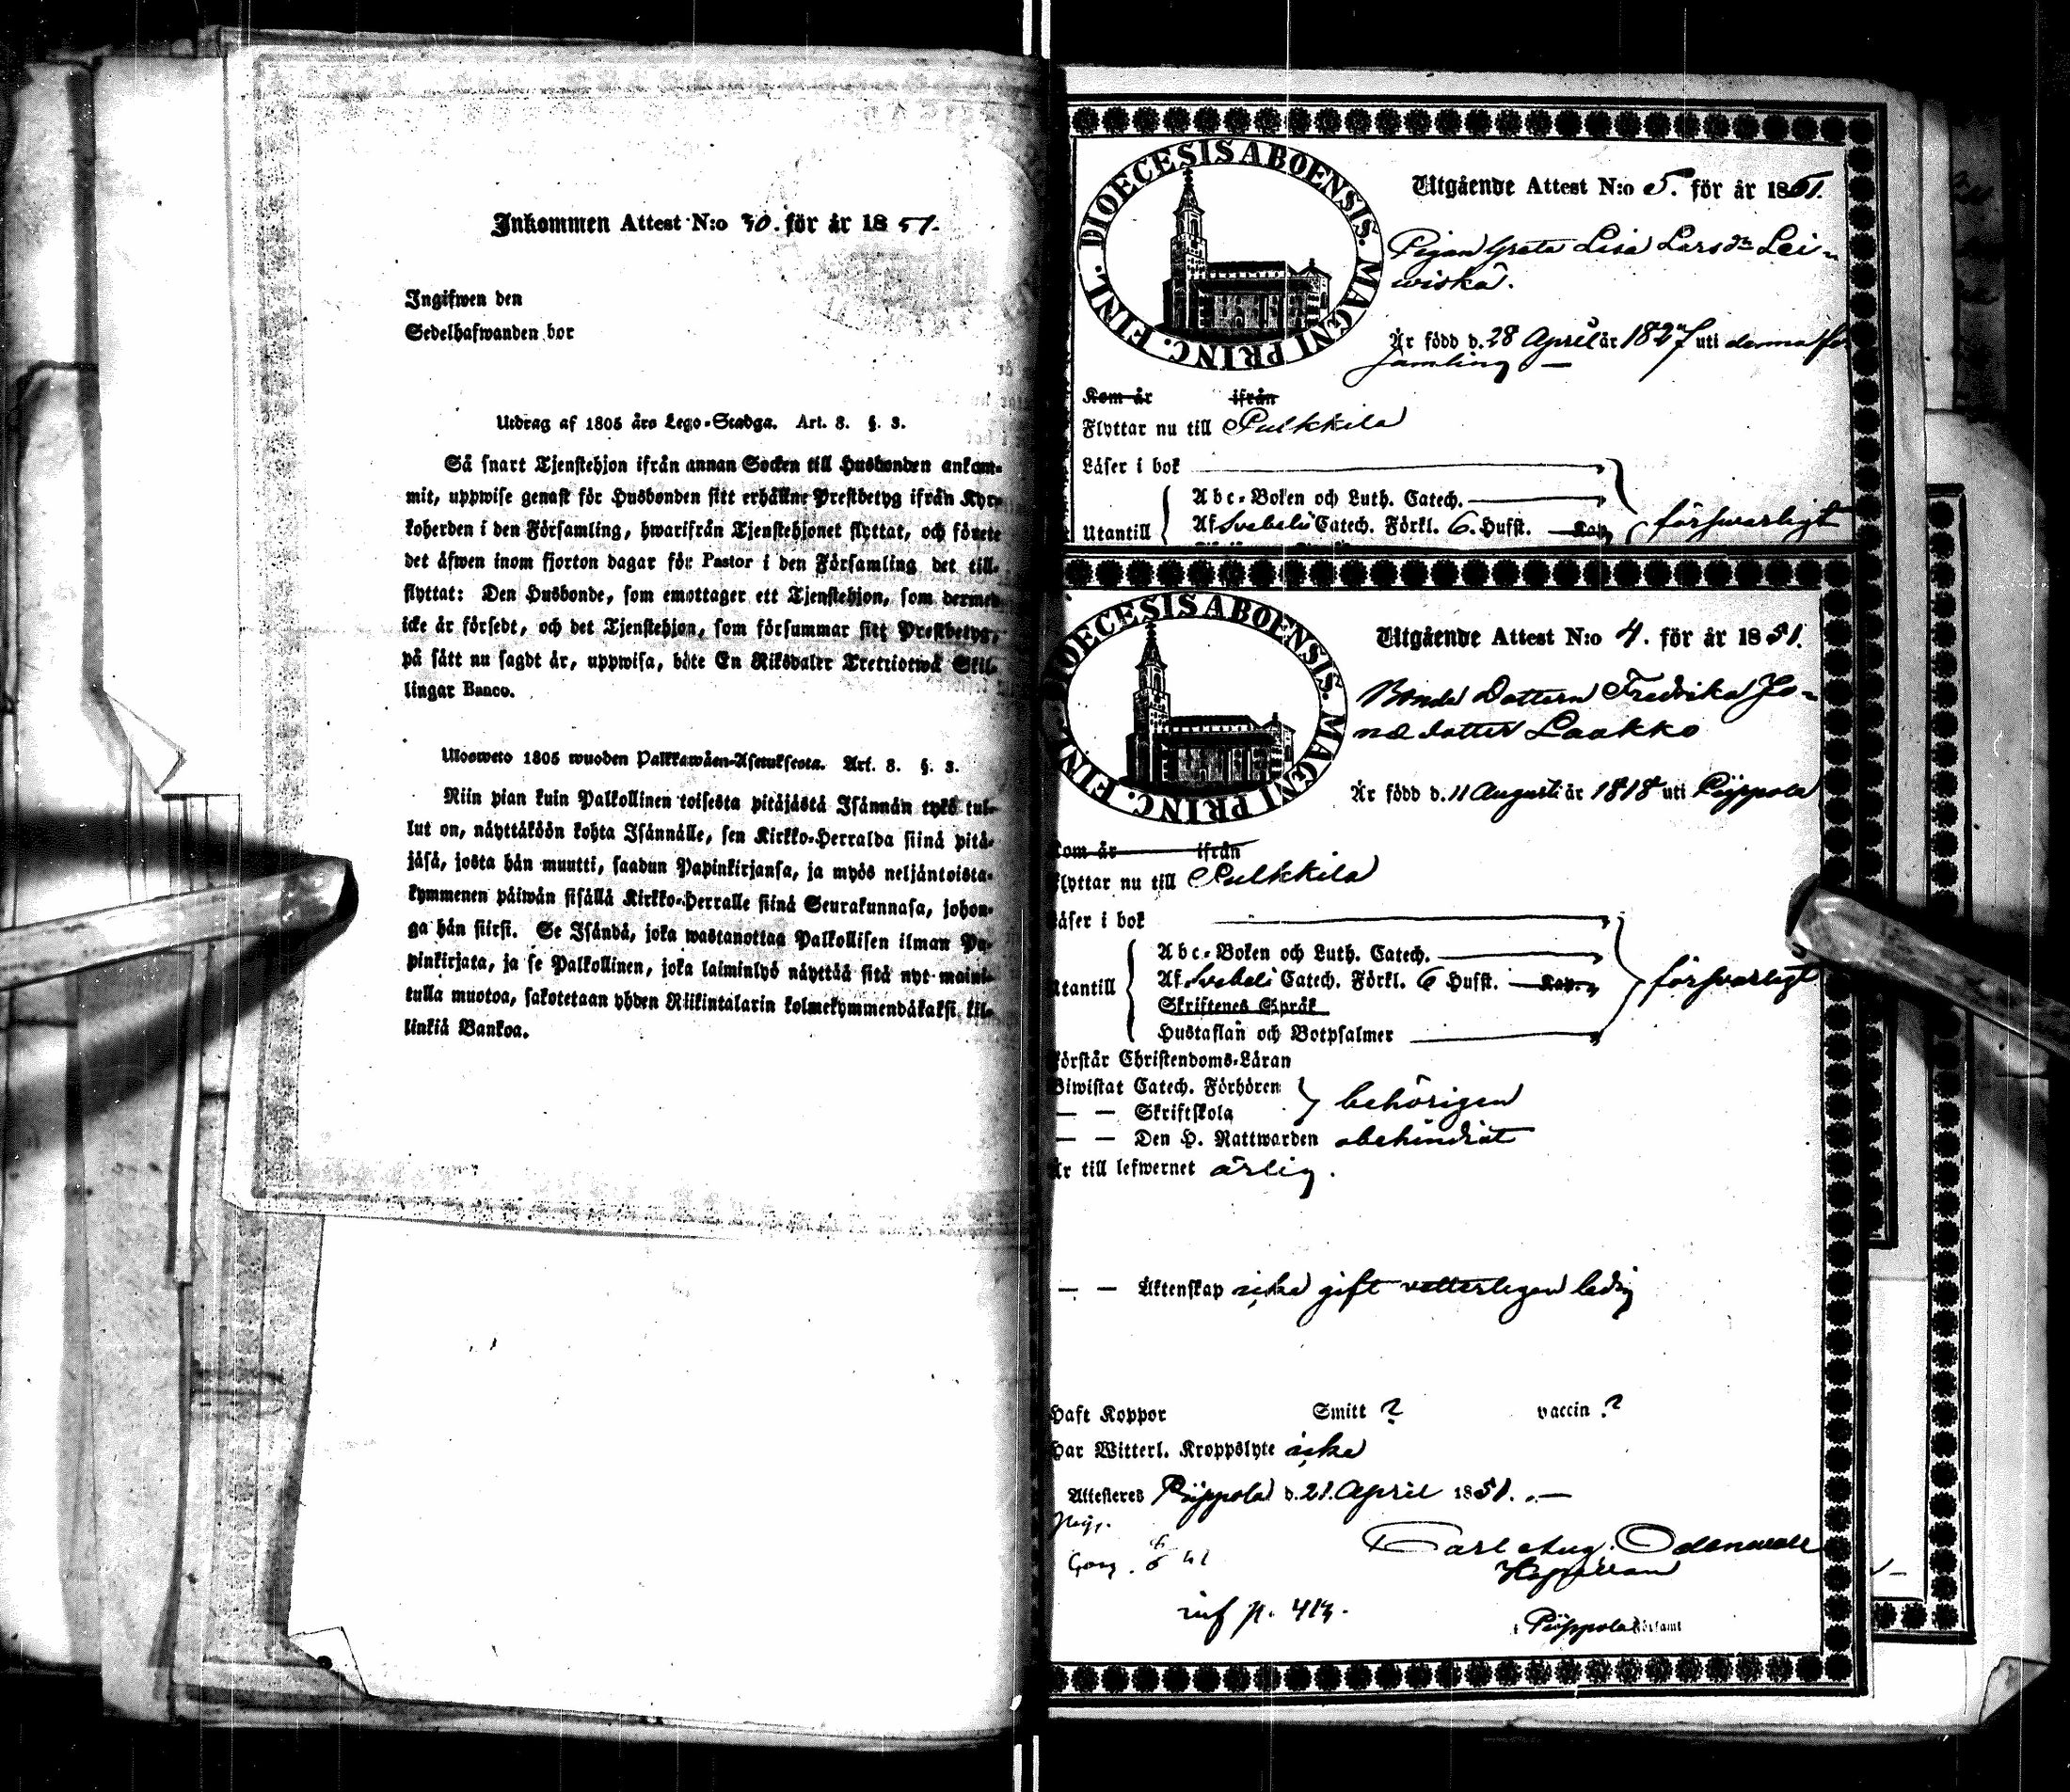 Inkommen Attest N:o 30. för år 1851.
Ingifwen den
Sedelhafwanden bor
Utdrag af 1805 års Lego-Stadga. Art. 8. §. 3.
Så snart Tjenstehjon ifrån annan Socken till Husbonden ankom-
mit, uppwise genast för Husbonden sitt erhållne Prestbetyg ifrån Kyr-
koherden i den Församling, hwarifrån Tjenstehjonet flyttat, och förete
det äfwen inom fjorton dagar för Pastor i den Församling det till-
flyttat: Den Husbonde, som emottager ett Tjenstehjon, som dermed
icke är försedt, och det Tjenstehjon, som försummar sitt Prestbetyg,
på sätt nu sagdt är, uppwisa, böte En Riksdaler Trettiotwå Skil-
lingar Banco.
Ulosweto 1805 wuoden Palkkawäen-Asetuksesta. Art. 8. §. 3.
Niin pian kuin Palkollinen toisesta pitäjästä Isännän tykö tul-
lut on, näyttäköön kohta Isännälle, sen Kirkko-Herralda siinä pitä-
jäsä, josta hän muutti, saadun Papinkirjansa, ja myös neljäntoista-
kymmenen päiwän sisällä Kirkko-Herralle siinä Seurakunnasa, johon-
ga hän siirsi. Se Isändä, joka wastanottaa Palkollisen ilman Pa-
pinkirjata, ja se Palkollinen, joka laiminlyö näyttää sitä nyt maini-
tulla muotoa, sakotetaan yhden Riikintalarin kolmekymmendäkaksi kil-
linkiä Bankoa.
DIOECESIS ABOENSIS. MAGNI PRINC. FINL.
Utgående Attest N:o 5. för år 1851.
Pigan Greta Lisa Larsdr Lei-
wiskä.
Är född d. 28 April år 1827 uti denna för
samling
Kom år ifrån
Flyttar nu till Pulkkila
Läser i bok
Abc-Boken och Luth. Catech.
Utantill Af Svebelii Catech. Förkl. 6. Hufst. Kap. försvarligt
DIOECESIS ABOENSIS. MAGNI PRINC. FINL.
Utgående Attest N:o 4. för år 1851.
Bonde Dottern Fredrika Jo-
nædotter Laakko
Är född d. 11 Augusti år 1818 uti Piippola
Kom år ifrån
Flyttar nu till Pulkkila
Läser i bok
Abc-Boken och Luth. Catech.
Utantill Af Svebelii Catech. Förkl. 6 Hufst. Kap. försvarligt
Skriftenes Språk
Hustaflan och Botpsalmer
Förstår Christendoms-Läran
Biwistat Catech. Förhören behörigen
— — Skriftskola
— — Den H. Nattwarden obehindrat
Är till lefwernet ärlig.
— — Äktenskap icke gift vetterligen ledig
Haft Koppor Smitt ? vaccin ?
Har Witterl. Kroppslyte icke
Attesteres Piippola d. 21. April 1851.
Carl Aug. Odenwall
Kapellan
inf p. 413.
i Piippola Församl